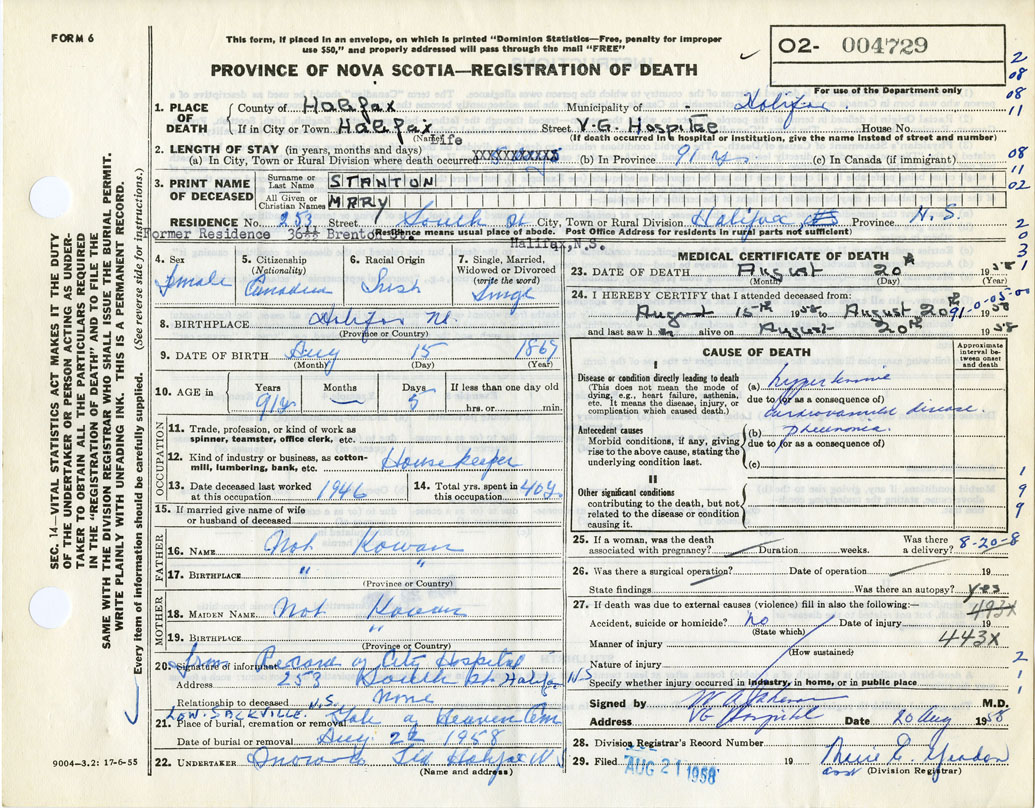 FORM 6
This form, if placed in an envelope, on which is printed "Dominion Statistics—Free, penalty for improper
use $50," and properly addressed will pass through the mail "FREE"
PROVINCE OF NOVA SCOTIA—REGISTRATION OF DEATH
O2- 004729
For use of the Department only
2
08
08
11
08
11
02
2
0
3
1. PLACE OF DEATH { County of Halifax Municipality of - Halifax
If in City or Town Halifax Street V.G. Hospital House No.
(Name) (If death occurred in a hospital or institution, give the name instead of street and number)
2. LENGTH OF STAY (in years, months and days) Life
(a) In City, Town or Rural Division where death occurred (b) In Province 91 ys. (c) In Canada (if immigrant)
3. PRINT NAME OF DECEASED { Surname or Last Name STANTON
All Given or Christian Names MARY
RESIDENCE No. 253 Street South St City, Town or Rural Division Halifax Province N.S.
Former Residence 36½ Brenton St. Residence means usual place of abode. Post Office Address for residents in rural parts not sufficient)
Halifax, N.S.
4. Sex Female
5. Citizenship (Nationality) Canadian
6. Racial Origin Irish
7. Single, Married, Widowed or Divorced (write the word) Single
8. BIRTHPLACE Halifax
(Province or Country)
9. DATE OF BIRTH Aug 15 1867
(Month) (Day) (Year)
10. AGE in { Years 91 Months — Days 5 If less than one day old
hrs. or min.
OCCUPATION
11. Trade, profession, or kind of work as spinner, teamster, office clerk, etc.
12. Kind of industry or business, as cotton-mill, lumbering, bank, etc. Housekeeper
13. Date deceased last worked at this occupation 1946
14. Total yrs. spent in this occupation 40y
15. If married give name of wife or husband of deceased
FATHER
16. NAME Not Kowan
17. BIRTHPLACE " "
(Province or Country)
MOTHER
18. MAIDEN NAME Not Kowan
19. BIRTHPLACE "
(Province or Country)
20. Signature of informant from Record of City Hospital
Address 253 South St Halifax N.S
Relationship to deceased None
21. Place of burial, cremation or removal LOW. SACKVILLE. N.S. Gate of Heaven Cem
Date of burial or removal Aug 22 1958
22. UNDERTAKER Snows Ltd Halifax N S
(Name and address)
MEDICAL CERTIFICATE OF DEATH
23. DATE OF DEATH August 20 1958
(Month) (Day) (Year)
24. I HEREBY CERTIFY that I attended deceased from:
August 15th 1958 to August 20th 1958
91-0-05-00
and last saw h er alive on August 20th 1958
CAUSE OF DEATH
Approximate interval between onset and death
I
Disease or condition directly leading to death
(This does not mean the mode of dying, e.g., heart failure, asthenia, etc. It means the disease, injury, or complication which caused death.)
(a) hypertensive
due to (or as a consequence of)
cardiovascular disease.
Antecedent causes
Morbid conditions, if any, giving rise to the above cause, stating the underlying condition last.
(b) pneumonia.
due to (or as a consequence of)
(c)
II
Other significant conditions
contributing to the death, but not related to the disease or condition causing it.
1
9
9
25. If a woman, was the death associated with pregnancy? Duration weeks. Was there a delivery? 8-20-8
26. Was there a surgical operation? Date of operation 19
State findings Was there an autopsy? yes
27. If death was due to external causes (violence) fill in also the following:—
493x
Accident, suicide or homicide? No Date of injury 19
(State which)
443X
Manner of injury
(How sustained)
Nature of injury
Specify whether injury occurred in industry, in home, or in public place
2
1
1
Signed by M.D.
Address VG Hospital Date 20 Aug 1958
28. Division Registrar's Record Number
29. Filed AUG 21 1958 19
(Division Registrar)
SEC. 14—VITAL STATISTICS ACT MAKES IT THE DUTY
OF THE UNDERTAKER OR PERSON ACTING AS UNDER-
TAKER TO OBTAIN ALL THE PARTICULARS REQUIRED
IN THE "REGISTRATION OF DEATH" AND TO FILE THE
SAME WITH THE DIVISION REGISTRAR WHO SHALL ISSUE THE BURIAL PERMIT.
WRITE PLAINLY WITH UNFADING INK. THIS IS A PERMANENT RECORD.
Every item of information should be carefully supplied. (See reverse side for instructions.)
9004—3.2: 17-6-55